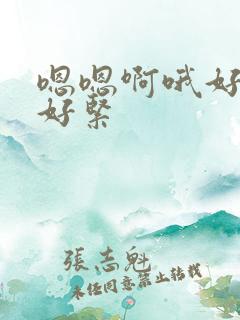 嗯嗯啊哦好
好紧
張志魁
未经同意禁止转载